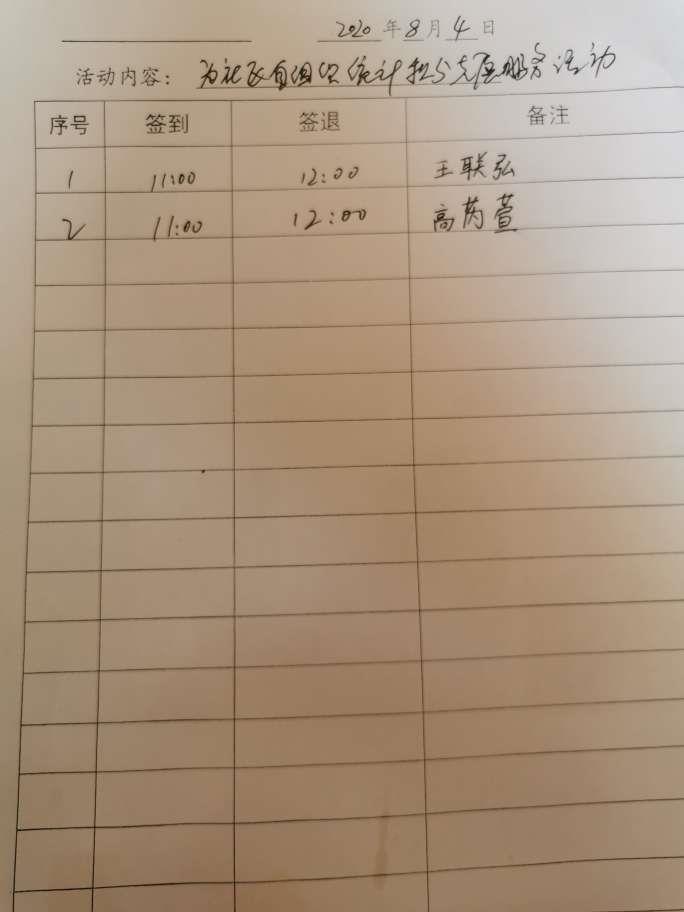 2020 年 8 月 4 日
活动内容： 为社区自组织统计积分志愿服务活动
序号 签到 签退 备注
1 11:00 12:00 王联弘
2 11:00 12:00 高芮萱